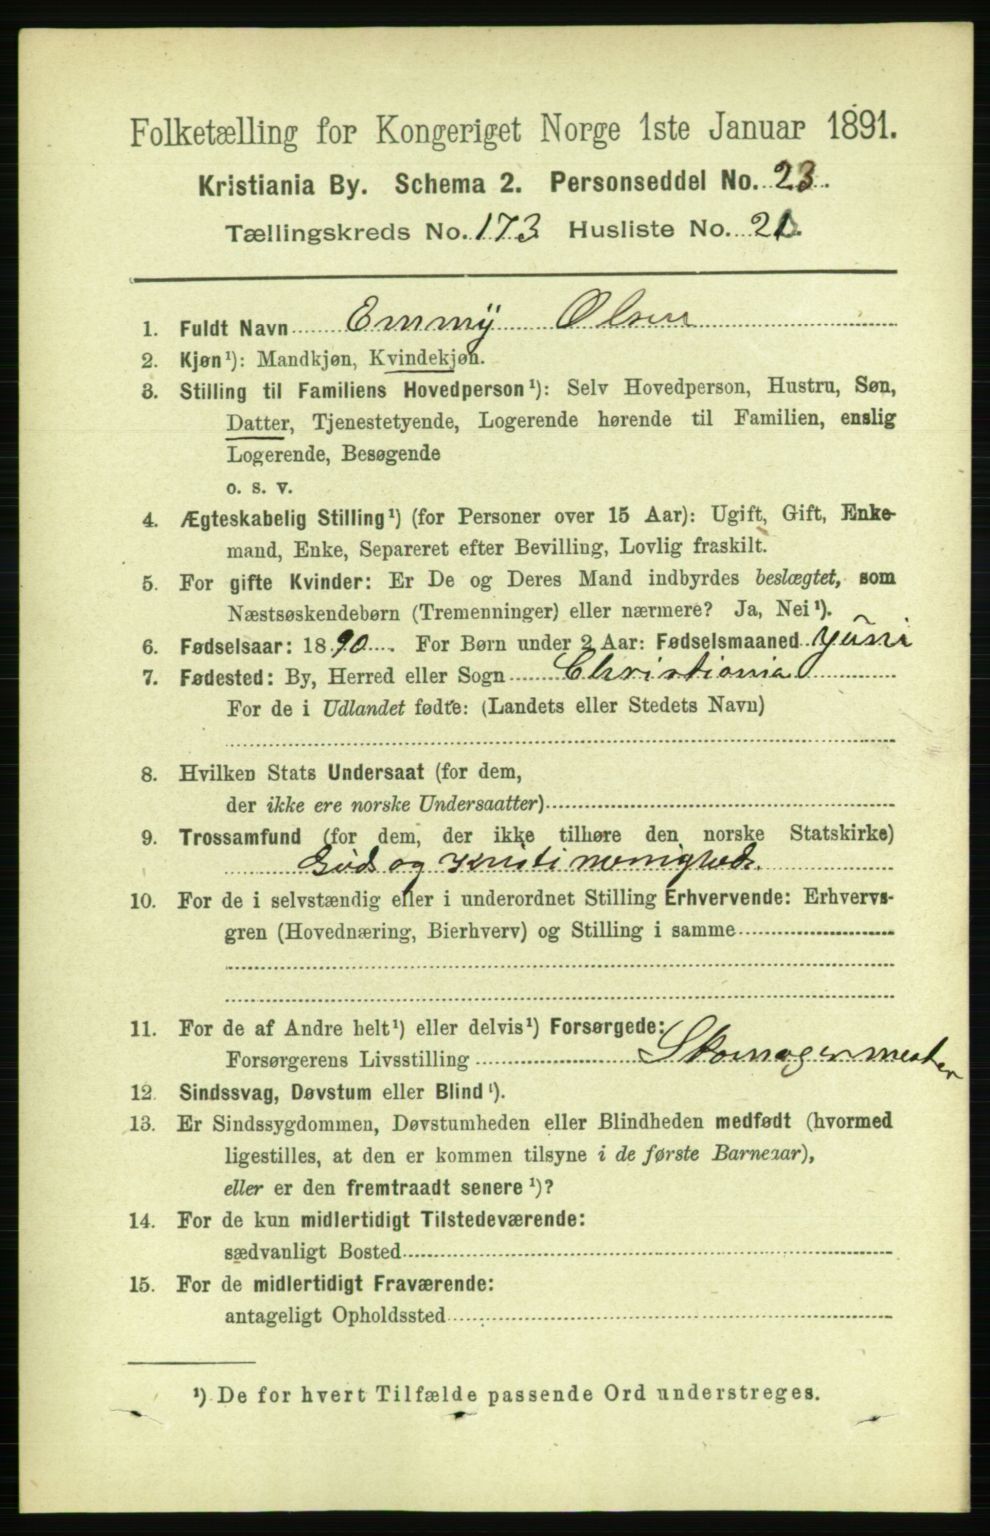 Folketælling for Kongeriget Norge 1ste Januar 1891.
Kristiania By. Schema 2. Personseddel No. 23.
Tællingskreds No. 173 Husliste No. 21.
1. Fuldt Navn Emmÿ Olsen
2. Kjøn¹): Mandkjøn, Kvindekjøn.
3. Stilling til Familiens Hovedperson¹): Selv Hovedperson, Hustru, Søn,
Datter, Tjenestetyende, Logerende hørende til Familien, enslig
Logerende, Besøgende
o. s. v.
4. Ægteskabelig Stilling¹) (for Personer over 15 Aar): Ugift, Gift, Enke-
mand, Enke, Separeret efter Bevilling, Lovlig fraskilt.
5. For gifte Kvinder: Er De og Deres Mand indbyrdes beslægtet, som
Næstsøskendebørn (Tremenninger) eller nærmere? Ja, Nei¹).
6. Fødselsaar: 1890. For Børn under 2 Aar: Fødselsmaaned Yũni
7. Fødested: By, Herred eller Sogn Christiania
For de i Udlandet fødte: (Landets eller Stedets Navn)
8. Hvilken Stats Undersaat (for dem,
der ikke ere norske Undersaatter)
9. Trossamfund (for dem, der ikke tilhøre den norske Statskirke)
Guds og Kristi menighed.
10. For de i selvstændig eller i underordnet Stilling Erhvervende: Erhvervs-
gren (Hovednæring, Bierhverv) og Stilling i samme
11. For de af Andre helt¹) eller delvis¹) Forsørgede:
Forsørgerens Livsstilling Skomagermester
12. Sindssvag, Døvstum eller Blind¹).
13. Er Sindssygdommen, Døvstumheden eller Blindheden medfødt (hvormed
ligestilles, at den er kommen tilsyne i de første Barneaar),
eller er den fremtraadt senere¹)?
14. For de kun midlertidigt Tilstedeværende:
sædvanligt Bosted
15. For de midlertidigt Fraværende:
antageligt Opholdssted
¹) De for hvert Tilfælde passende Ord understreges.